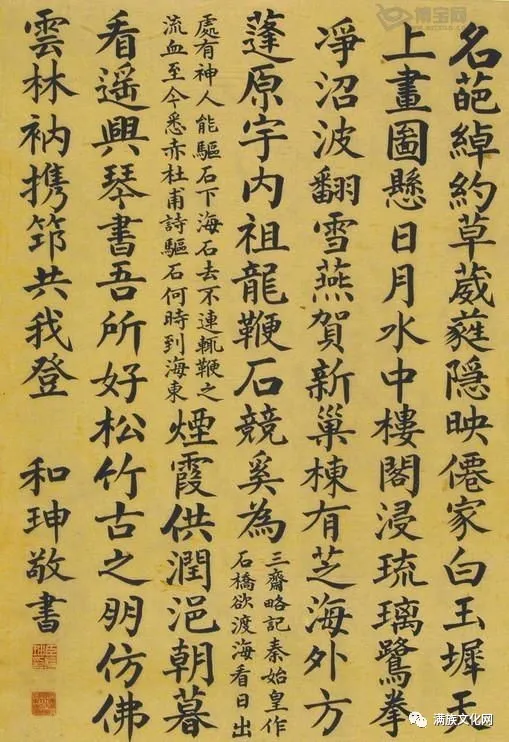 名葩綽約草葳蕤隱映僊家白玉墀天
上畫圖懸日月水中樓閣浸琉璃鷺拳
凈沼波翻雪燕賀新巢棟有芝海外方
蓬原宇内祖龍鞭石競奚為
三齋略記秦始皇作
石橋欲渡海看日出
處有神人能驅石下海石去不連輒鞭之
流血至今悉赤杜甫詩驅石何時到海東
煙霞供潤浥朝暮
看遥興琴書吾所好松竹古之朋仿佛
雲林衲携筇共我登
和珅敬書
满族文化网